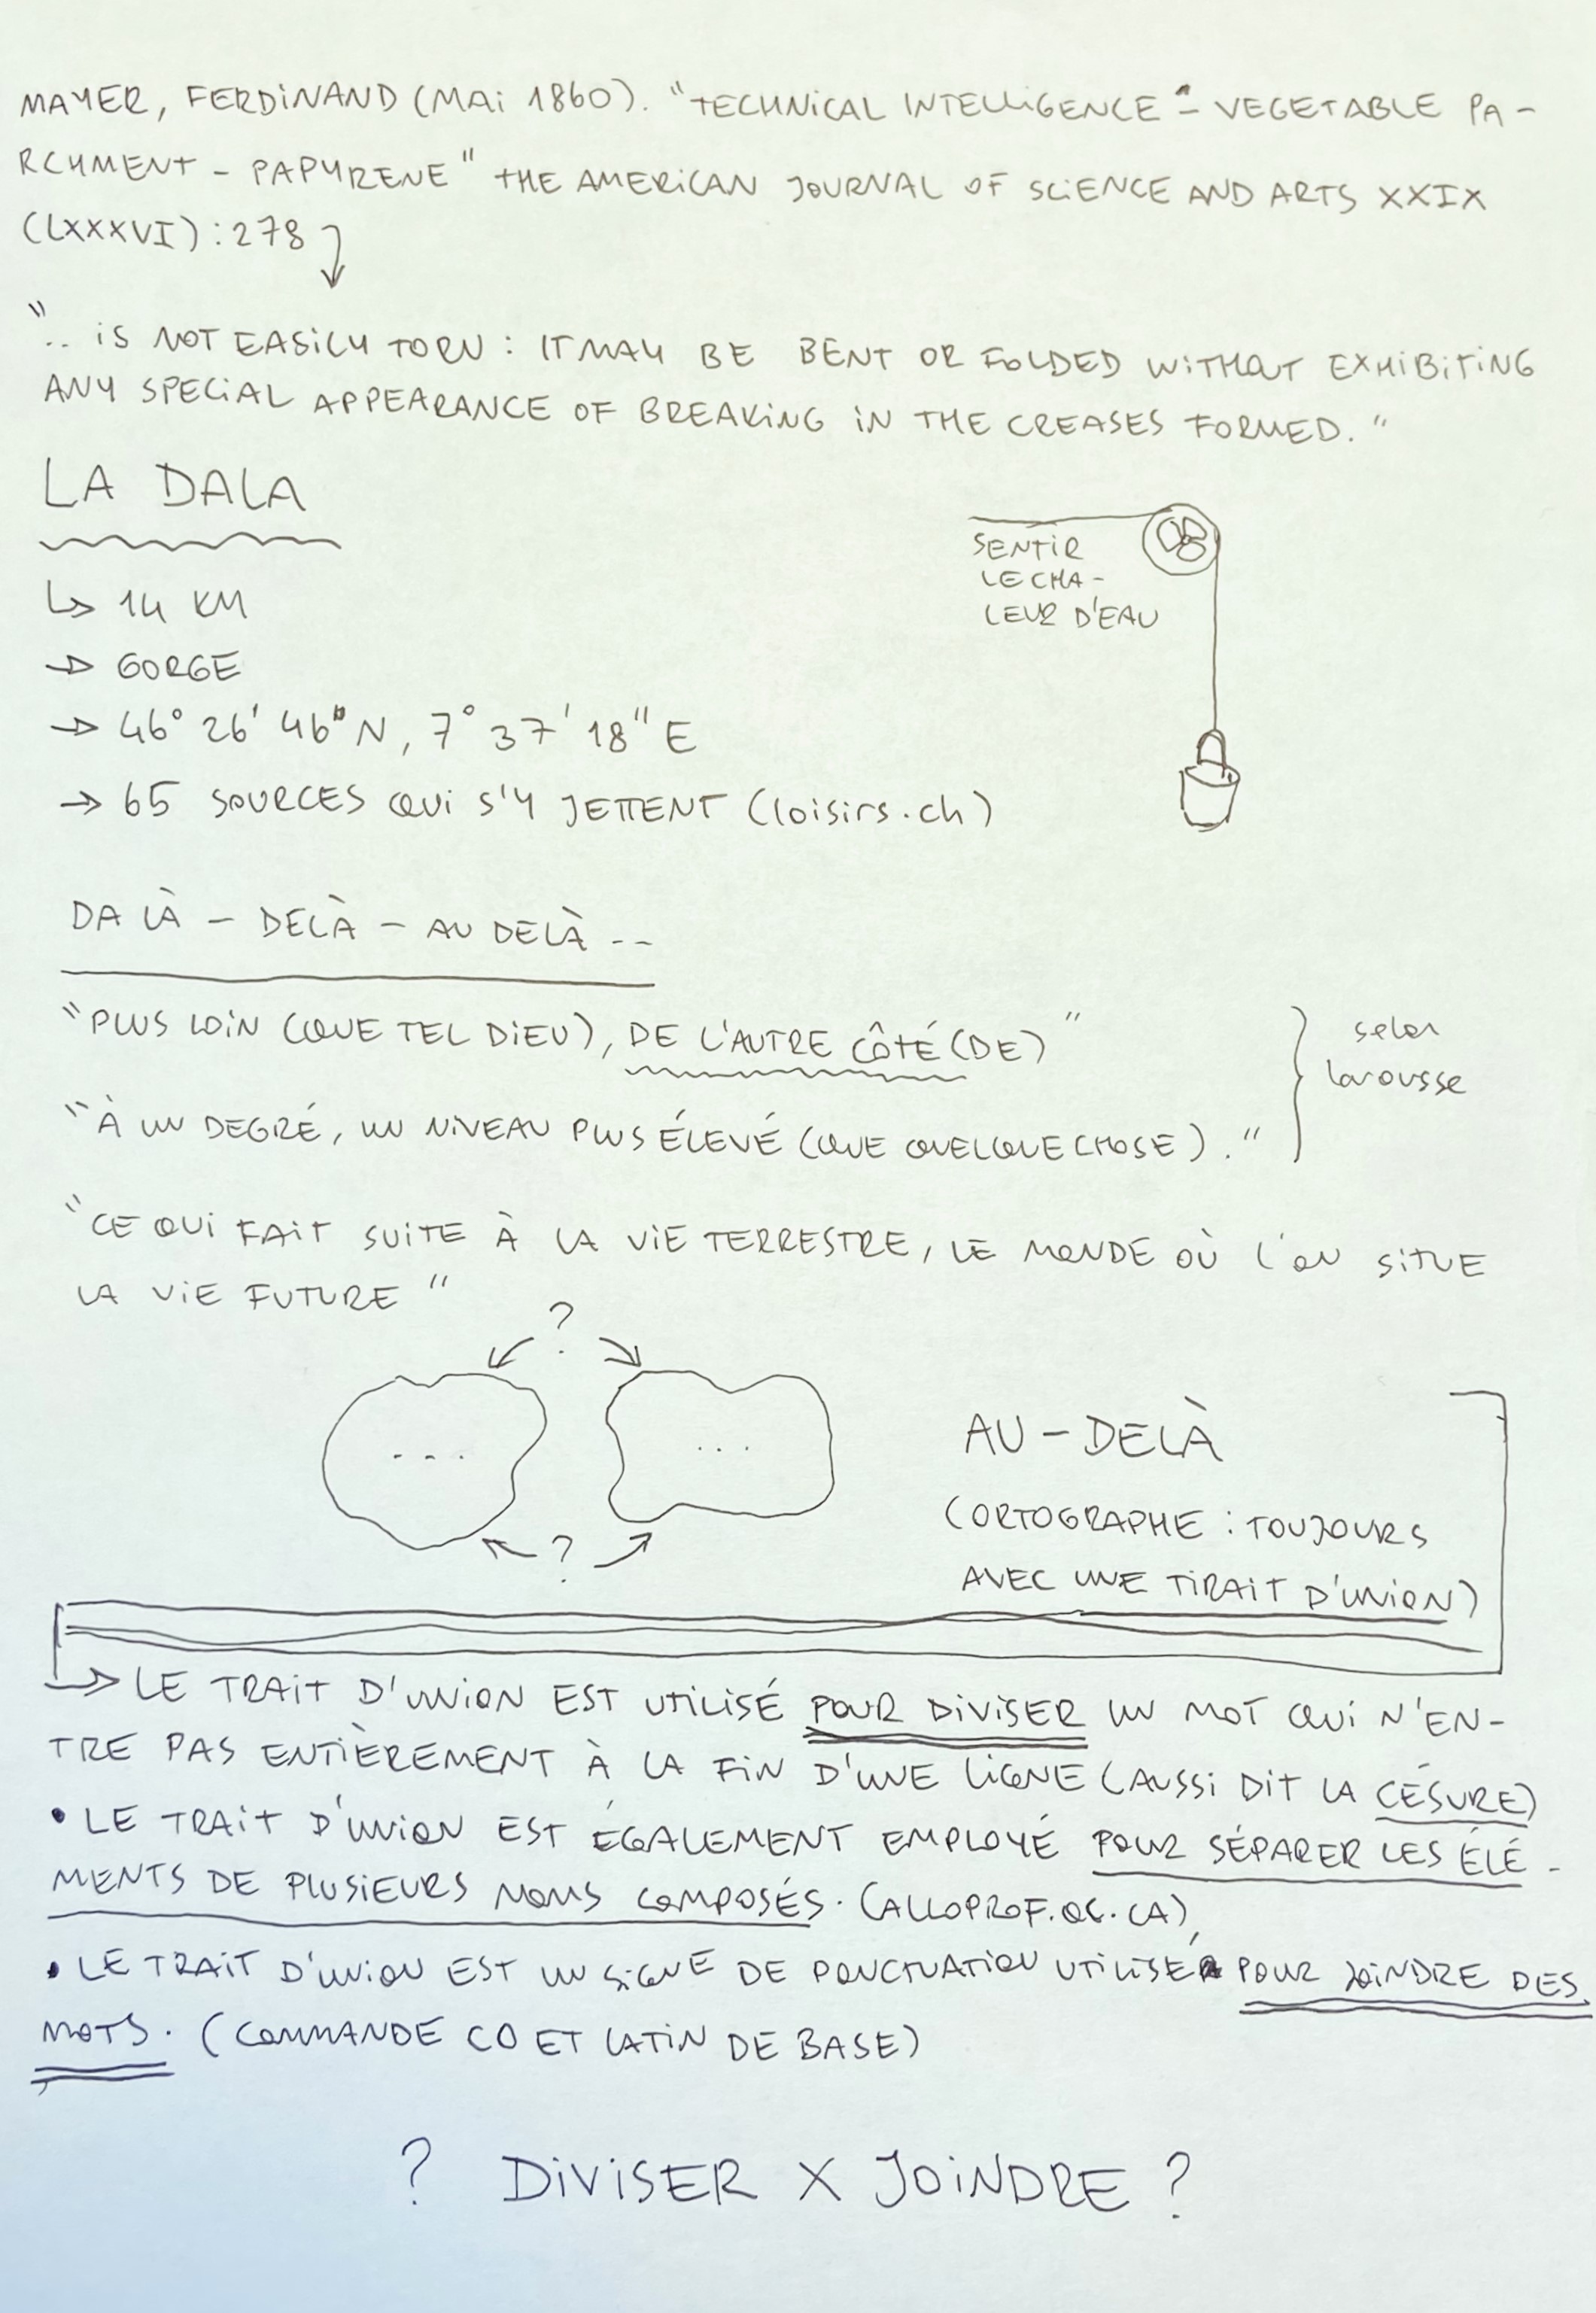 MAYER, FERDINAND (MAI 1860). "TECHNICAL INTELLIGENCE - VEGETABLE PA-
RCHMENT - PAPYRENE" THE AMERICAN JOURNAL OF SCIENCE AND ARTS XXIX
(LXXXVI): 278
".. IS NOT EASILY TORN : IT MAY BE BENT OR FOLDED WITHOUT EXHIBITING
ANY SPECIAL APPEARANCE OF BREAKING IN THE CREASES FORMED."
LA DALA
14 KM
GORGE
46° 26' 46" N, 7° 37' 18" E
65 SOURCES QUI S'Y JETTENT (loisirs.ch)
SENTIR
LE CHA-
LEUR D'EAU
DA LÀ - DELÀ - AU DELÀ --
"PLUS LOIN (QUE TEL DIEU), DE L'AUTRE CÔTÉ (DE)"
"À UN DEGRÉ, UN NIVEAU PLUS ÉLEVÉ (QUE QUELQUE CHOSE)."
selon
larousse
"CE QUI FAIT SUITE À LA VIE TERRESTRE, LE MONDE OÙ L'ON SITUE
LA VIE FUTURE"
?
--- ...
?
AU-DELÀ
(ORTOGRAPHE : TOUJOURS
AVEC UNE TIRAIT D'UNION)
LE TRAIT D'UNION EST UTILISÉ POUR DIVISER UN MOT QUI N'EN-
TRE PAS ENTIÈREMENT À LA FIN D'UNE LIGNE (AUSSI DIT LA CÉSURE)
• LE TRAIT D'UNION EST ÉGALEMENT EMPLOYÉ POUR SÉPARER LES ÉLÉ-
MENTS DE PLUSIEURS NOMS COMPOSÉS. (ALLOPROF.QC.CA)
• LE TRAIT D'UNION EST UN SIGNE DE PONCTUATION UTILISÉ POUR JOINDRE DES
MOTS. (COMMANDE CO ET LATIN DE BASE)
? DIVISER X JOINDRE ?